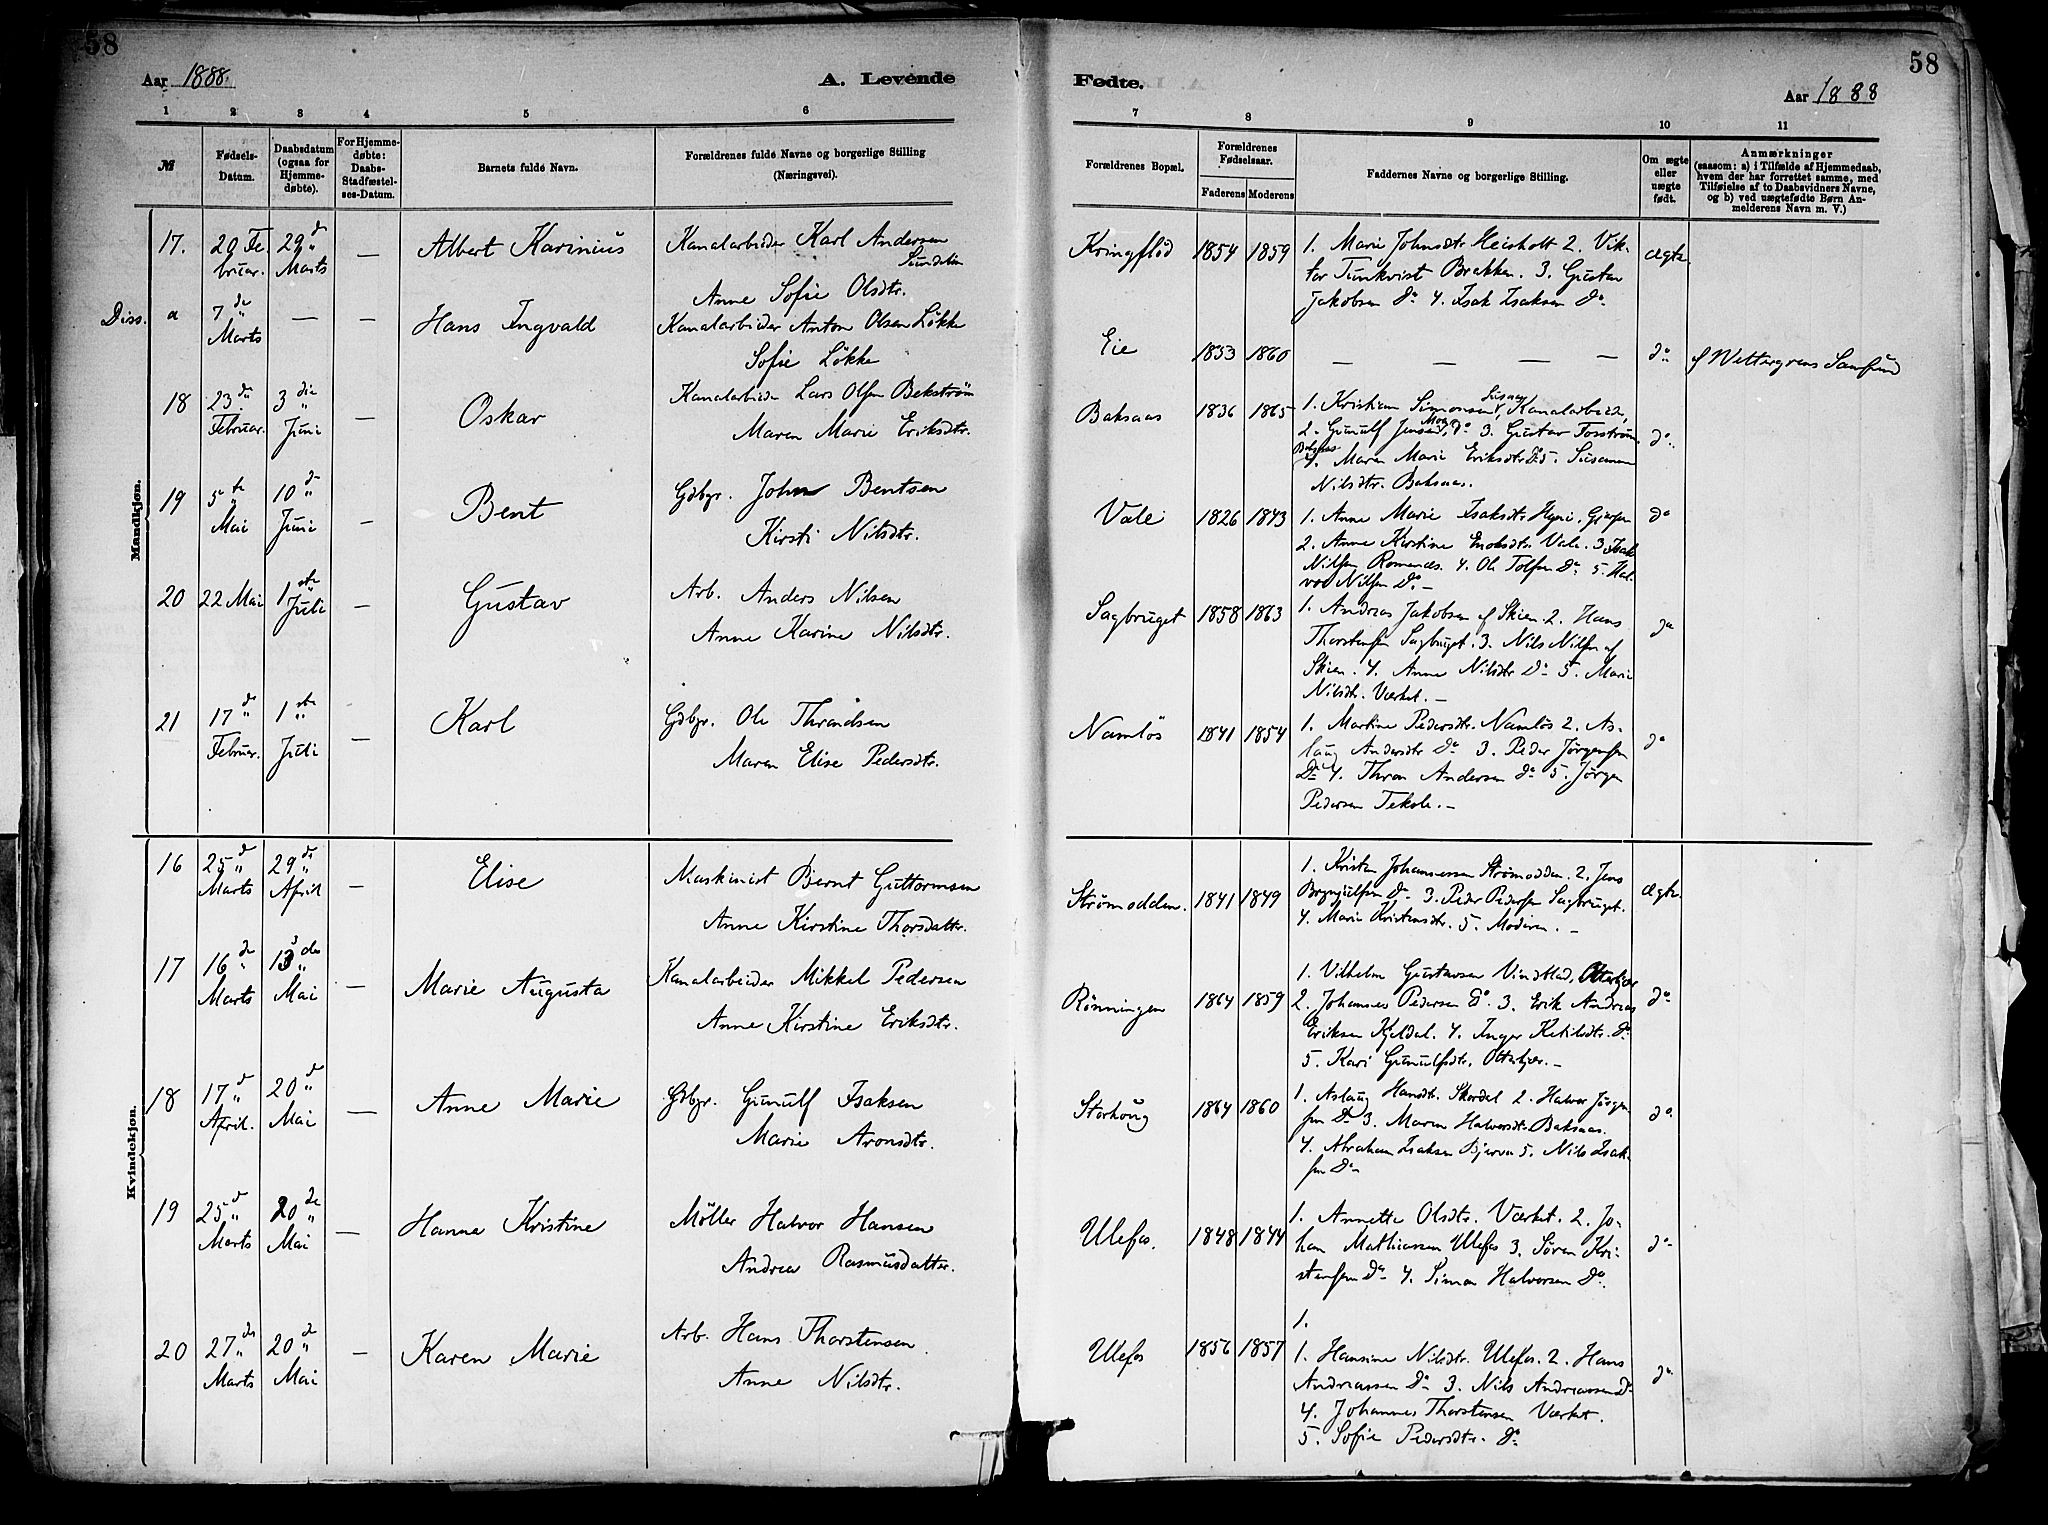 58
Aar 1888.
A. Levende
1 2 3 4 5 6
M
Fødsels-Datum.
Daabsdatum (ogsaa for Hjemmedøbte).
For Hjemmedøbte: Daabs-Stadfæstelses-Datum.
Barnets fulde Navn.
Forældrenes fulde Navne og borgerlige Stilling
(Næringsvei).
Mandkjøn.
17. 29 Februar. 29 d Marts — Albert Karinius Kanalarbeider Karl Andersen Sundelin
Anne Sofie Olsdtr.
Diss. a 7 de Marts — — Hans Ingvald Kanalarbeider Anton Olsen Løkke
Sofie Løkke
18 23. de Februar. 3 die Juni — Oskar Kanalarbeider Lars Olsen Bekström
Maren Marie Eriksdtr.
19 5 te Mai 10 de Juni — Bent Gdbgr. John Bentsen
Kirsti Nilsdtr.
20 22 Mai 1 ste Juli — Gustav Arb. Anders Nilsen
Anne Karine Nilsdtr.
21 17 de Februar. 1 ste Juli — Karl Gdbgr. Ole Throndsen
Maren Elise Pedersdtr.
Kvindekjøn.
16 25 de Marts 29 de April — Elise Maskinist Bernt Guttormsen
Anne Kirstine Thorsdatter.
17 16 de Marts 13 de Mai — Marie Augusta Kanalarbeider Mikkel Pedersen
Anne Kirstine Eriksdtr.
18 17 d April. 20 d Mai — Anne Marie Gdbgr. Gunulf Isaksen
Marie Aronsdtr.
19 25 d Marts 20 de Mai — Hanne Kristine Møller Halvor Hansen
Andrea Rasmusdatter.
20 27 de Marts 20 de Mai — Karen Marie Arb. Hans Thorstensen
Anne Nilsdtr.
58
Fødte.
Aar 1888
7 8 9 10 11
Forældrenes Bopæl.
Forældrenes Fødselsaar.
Faderens Moderens
Faddernes Navne og borgerlige Stilling.
Om ægte eller uægte født.
Anmærkninger
(saasom: a) i Tilfælde af Hjemmedaab,
hvem der har forrettet samme, med
Tilføielse af to Daabsvidners Navne,
og b) ved uægtefødte Børn An-
melderens Navn m. V.)
Kringflod 1854 1859 1. Marie Johnsdtr. Heisholt 2. Vik- ægte.
tor Tunkvist Brakken. 3. Gustav
Jakobsen do 4. Isak Isaksen do.
Eie 1853 1860 — — — — do. f Wettergrens Samfund
Baksaas 1836 1865 1. Kristian Simonsen, Kanalarbeider,
2. Gunulf Jensen, do 3. Gustav Forström do.
4. Maren Marie Eriksdtr. do 5. Susanna
Nilsdtr. Baksaas.
Vale 1826 1843 1. Anne Marie Isaksdtr. do
2. Anne Kirstine Enoksdtr. Vale. 3. Isak
Nilsen Romenæs. 4. Ole Tolfsen do 5. Hal-
vor Nilsen do. —
Sagbruget 1858 1863 1. Andreas Jakobsen af Skien. 2. Hans do
Thorstensen Sagbruget. 3. Nils Nilsen af
Skien. 4. Anne Nilsdtr do 5. Marie
Nilsdtr. Værket. —
Namløs 1841 1854 1. Martine Pedersdtr. Namløs 2. As- do
laug Andersdtr do 3. Peder Jørgensen
do 4. Thron Andersen do 5. Jørgen
Pedersen Tekole. —
Strømodden. 1841 1849 1. Kristen Johannessen Strømodden. 2. Jens ægte.
Brynjulfsen do 3. Peder Pedersen Sagbruget.
4. Marie Kristensdtr. 5. Moderen. —
Rönningen 1864 1859 1. Vilhelm Gustavsen Vindblad, do
2. Johannes Pedersen do. 3. Erik Andreas
Eriksen Kjeldal. 4. Inger Ketilsdtr. do
5. Kari Gunulfsdtr. Otterkjær. —
Storhoug 1864 1860 1. Aslaug Hansdtr. Skardal 2. Halvor Jörgen- do.
sen do 3. Maren Halvorsdtr. Baksaas.
4. Abraham Isaksen Bjerva 5. Nils Isak-
sen do
Ulefos. 1848 1844 1. Annette Olsdtr. Værket. 2. Jo- do
han Mathiassen Ulefos 3. Søren Kri-
stensen do 4. Simon Halvorsen do.
1.
Ulefos 1856 1857 1. Hansine Nilsdtr. Ulefos. 2. Hans do
Andreassen do 3. Nils Andreassen do
4. Johannes Thorstensen Værket.
5. Sofie Pedersdtr. do